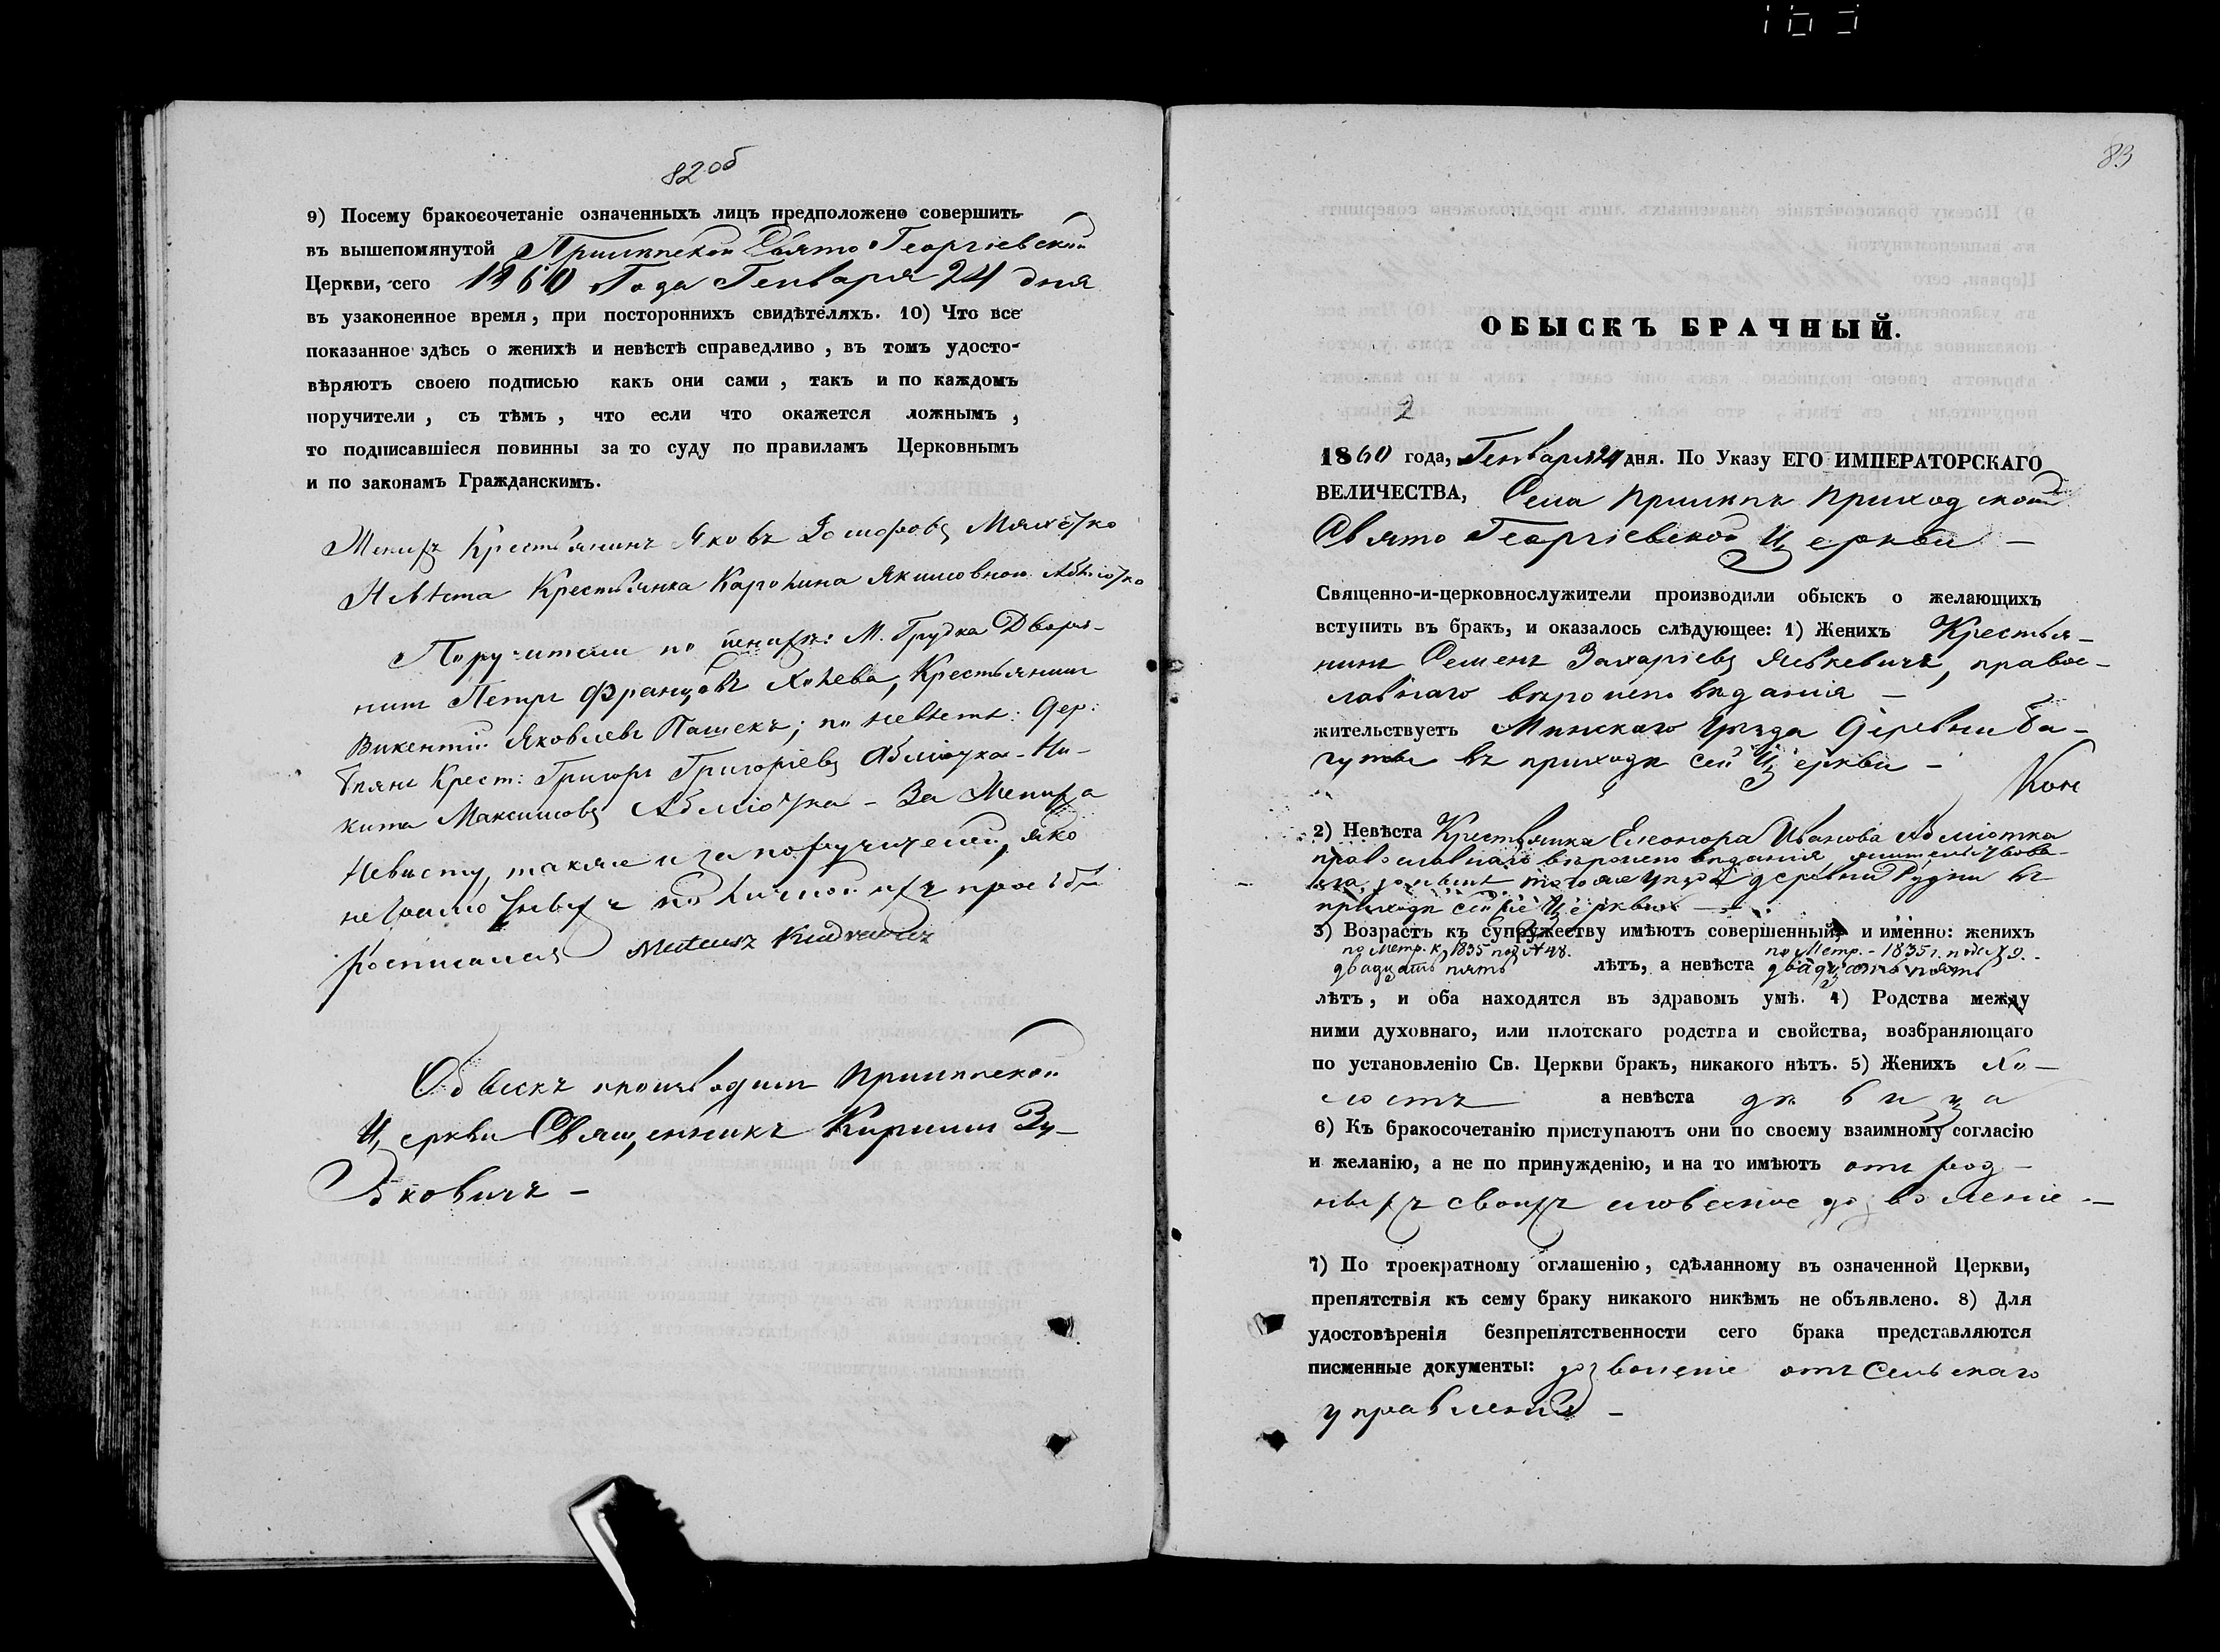 82 об
9) Посему бракосочетаніе означенныхъ лицъ предположено совершить
въ вышепомянутой Прилипской Свято Георгіевской
Церкви, сего 1860 Года Генваря 24 дня
въ узаконенное время, при постороннихъ свидѣтеляхъ. 10) Что все
показанное здѣсь о женихѣ и невѣстѣ справедливо, въ томъ удосто-
вѣряютъ своею подписью какъ они сами, такъ и по каждомъ
поручители, съ тѣмъ, что если что окажется ложнымъ,
то подписавшіеся повинны за то суду по правиламъ Церковнымъ
и по законамъ Гражданскимъ.
Женихъ Крестьянинъ Яковъ
Невѣста Крестьянка Каролина Якимовна
Поручители по женихѣ: М. Грудка Дворя-
нинъ Петръ Францовъ Крестьянинъ
Викентій Яковлевъ Пашекъ; по невѣстѣ: Дер:
Крест: Григоръ Григоріевъ Аблюочка - Ни-
кита Максимовъ За Жениха
Невѣсту, также и за поручителей, яко
неграмотныхъ по личной ихъ прозьбѣ
росписался Mateusz
Обыскъ производилъ Прилипской
Церкви Священникъ Кириллъ
83
ОБЫСКЪ БРАЧНЫЙ.
2
1860 года, Генваря 24 дня. По Указу ЕГО ИМПЕРАТОРСКАГО
ВЕЛИЧЕСТВА, Села Прилипъ приходской
Свято Георгіевской Церкви —
Священно-и-церковнослужители производили обыскъ о желающихъ
вступить въ бракъ, и оказалось слѣдующее: 1) Женихъ Крестья-
нинъ Семенъ Захаріевъ Янкевичъ, право-
славнаго вѣроисповѣданія —
жительствуетъ Минскаго уѣзда деревни
въ приходѣ сей Церкви —
2) Невѣста Крестьянка Елеонора Иванова
православнаго вѣроисповѣданія, жительствова-
ла того же уѣзда деревни Рудни въ
приходѣ сей же Церкви —
3) Возрастъ къ супружеству имѣютъ совершенный, и именно: женихъ
по Метр. к. 1835 под № 48. по Метр. - 1835 г. под №
двадцать пять лѣтъ, а невѣста двадцать пять
лѣтъ, и оба находятся въ здравомъ умѣ. 4) Родства между
ними духовнаго, или плотскаго родства и свойства, возбраняющаго
по установленію Св. Церкви бракъ, никакого нѣтъ. 5) Женихъ хо-
лостъ а невѣста дѣвица
6) Къ бракосочетанію приступаютъ они по своему взаимному согласію
и желанію, а не по принужденію, и на то имѣютъ отъ род-
ныхъ своихъ словесное дозволеніе —
7) По троекратному оглашенію, сдѣланному въ означенной Церкви,
препятствія къ сему браку никакого никѣмъ не объявлено. 8) Для
удостовѣренія безпрепятственности сего брака представляются
писменные документы: дозволеніе отъ Сельскаго
управленія —